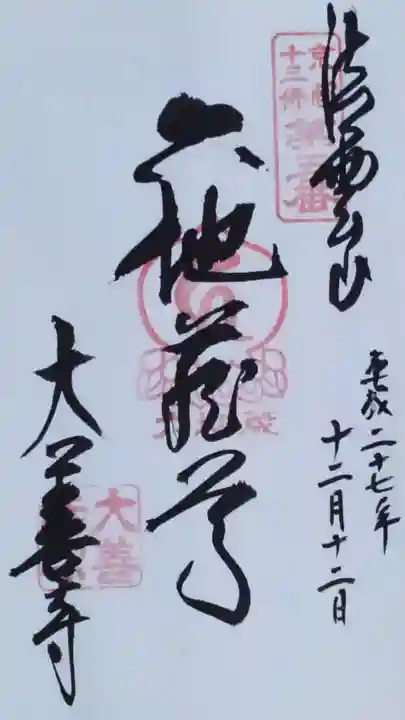 法雲山
京都
十三佛
第五番
平成二十七年
十二月十二日
六地蔵尊
大善寺
大善